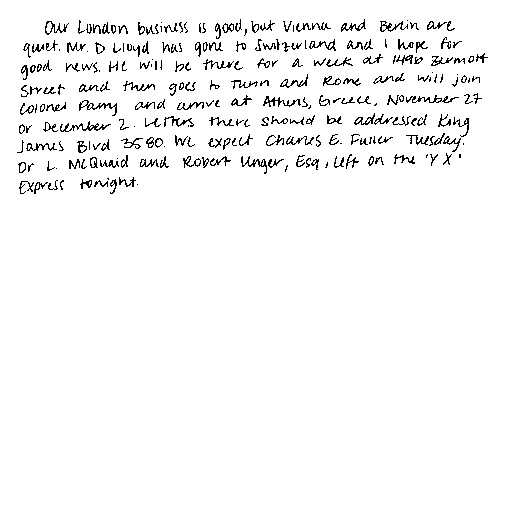 Our London business is good, but Vienna and Berlin are
quiet. Mr. D Lloyd has gone to Switzerland and I hope for
good news. He will be there for a week at 1496 Zermott
Street and then goes to Turin and Rome and will join
Colonel Parry and arrive at Athens, Greece, November 27
or December 2. Letters there should be addressed King
James Blvd 3580. We expect Charles E. Fuller Tuesday.
Dr L. McQuaid and Robert Unger, Esq, left on the 'Y X'
Express tonight.